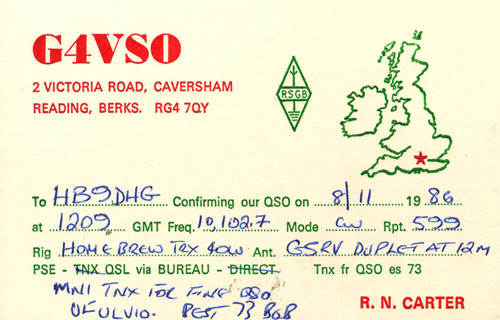 G4VSO
2 VICTORIA ROAD, CAVERSHAM
READING, BERKS. RG4 7QY
RSGB
To HB9DHG Confirming our QSO on 8/11 1986
at 1209 GMT Freq. 10,102.7 Mode CW Rpt. 599
Rig HOMEBREW TRX 40W Ant. G5RV DUPLET AT 12M
PSE - TNX QSL via BUREAU - DIRECT Tnx fr QSO es 73
MNI TNX FOR FINE QSO
ULVIO. BEST 73 BOB
R. N. CARTER